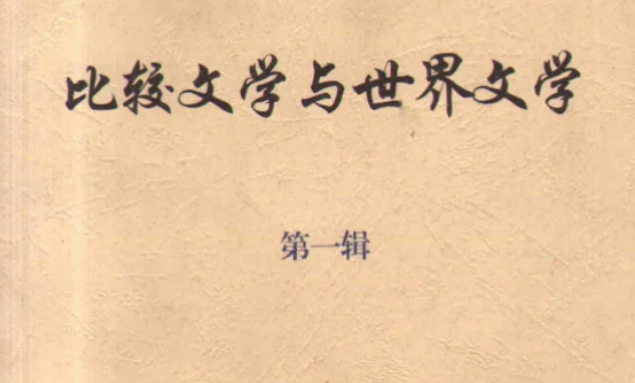 比较文学与世界文学
第一辑